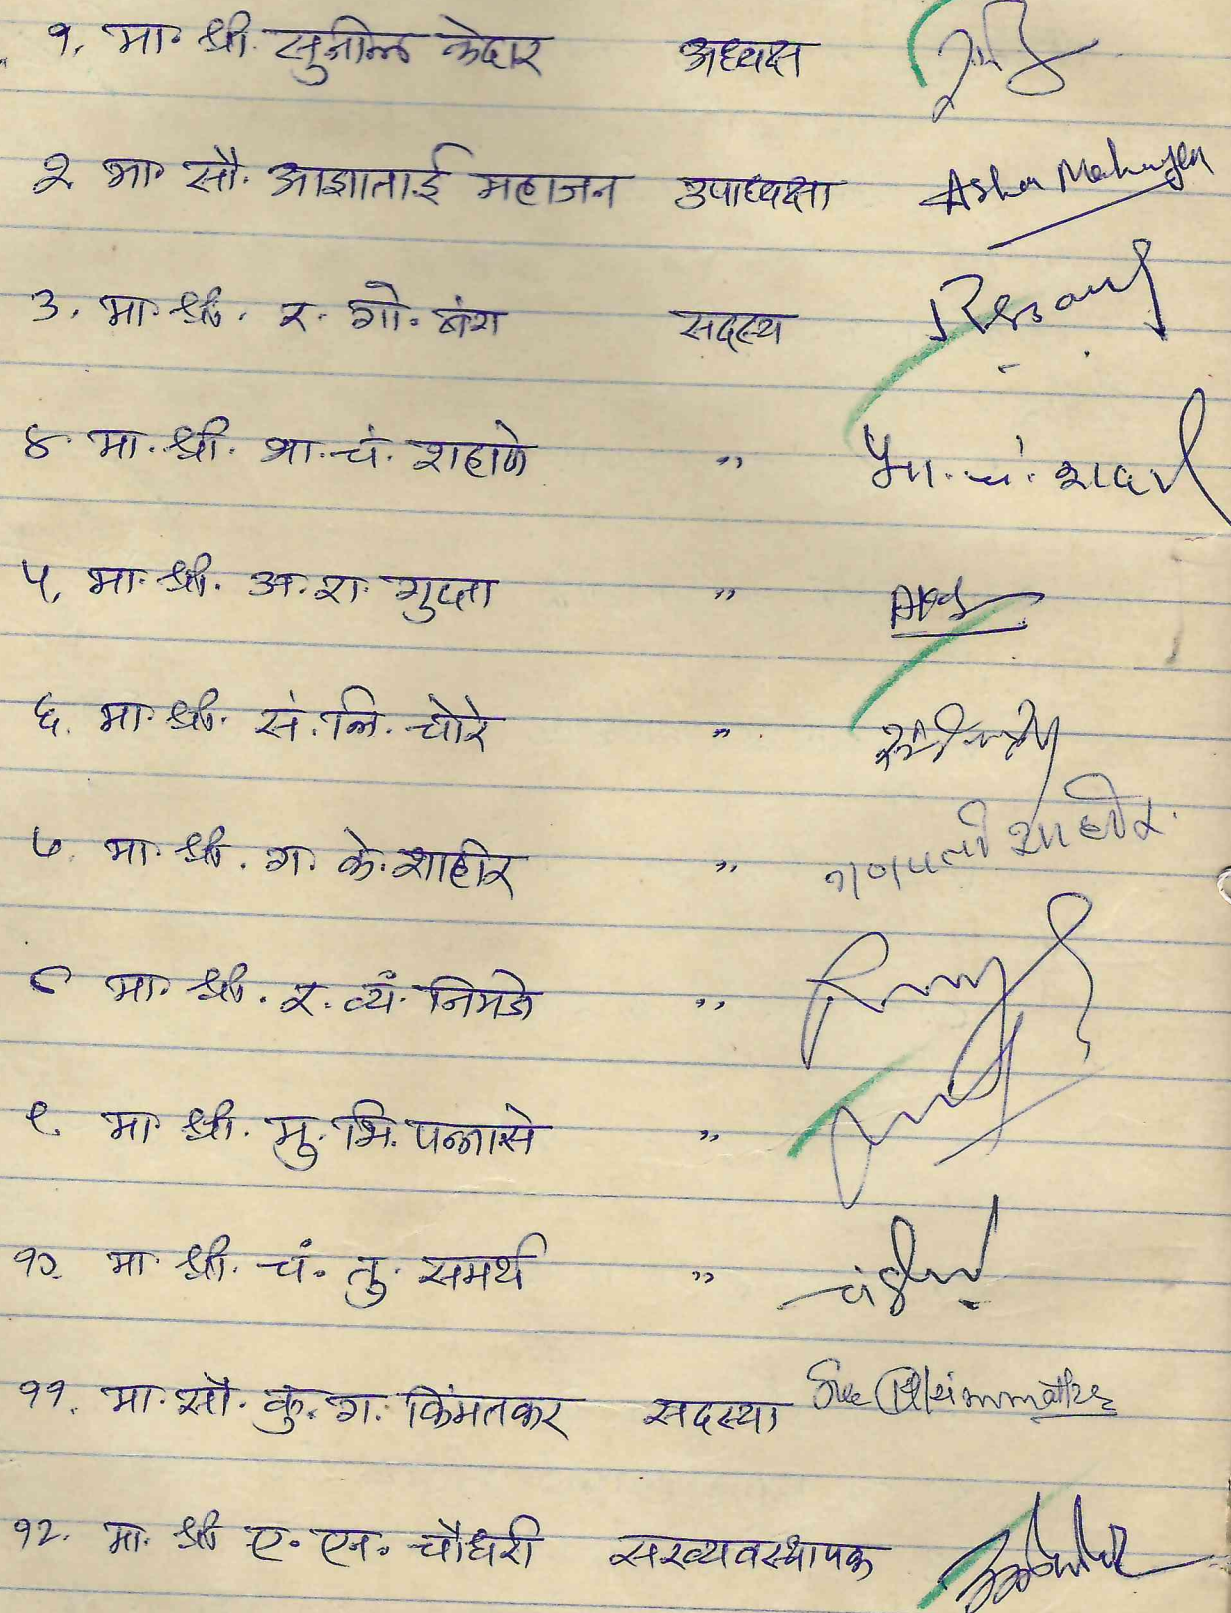 १. मा. श्री. सुनील केदार अध्यक्ष
२. मा. सौ. आशाताई महाजन उपाध्यक्षा Asha Mahajan
३. मा. श्री. र. गो. बंग सदस्य
४. मा. श्री. भा. चं. शहाणे " भा. चं. शहाणे
५. मा. श्री. अ. रा. गुप्ता "
६. मा. श्री. सं. लि. चोरे "
७. मा. श्री. ग. के. शाहीर " गणपती शाहीर
८. मा. श्री. र. व्यं. निमजे "
९. मा. श्री. मु. भि. पन्नासे "
१०. मा. श्री. चं. तु. समर्थ "
११. मा. सौ. कुं. ग. किंमतकर सदस्या
१२. मा. श्री. ए. एन. चौधरी सरव्यवस्थापक